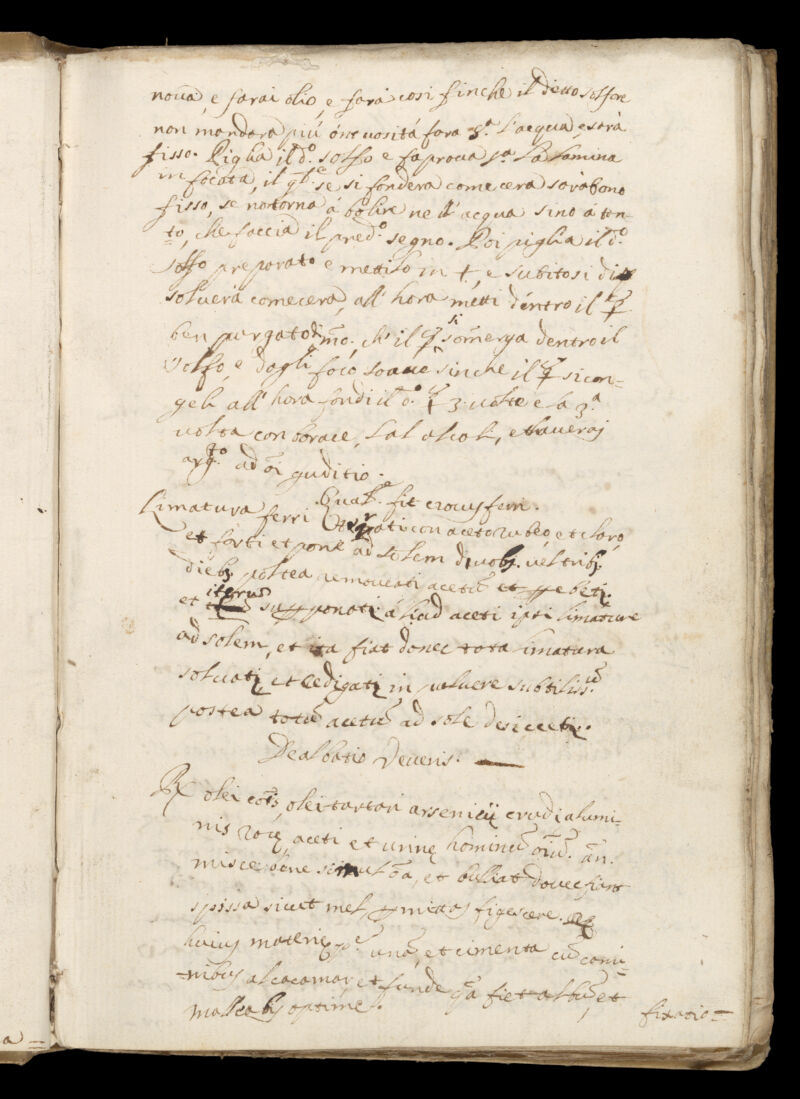 nova, e farai olio, e fara cosi finche il detto solfore
non mandara più onctuositá fora 3.ª l'acqua e sarà
fisso. Piglia il d.º solfo e fa prova s.ª la lamina
infocata, il q.le se si fondera come cera sarà bono
fisso, se no torna á bolire nell' acqua sino á tan-
to, che faccia il pred.º segno. Poi piglia il d.º
solfo preparato e mettilo in e subito si di
soluerà come cera, all' hora metti déntro il ☿
ben purgato mo, ch' il ☿ si somerga dentro il
solfo, e dagli foco soave sinche il ☿ si con-
geli all' hora fondi il d.º ☿ 3 volte e la 3.ª
volta con borace, sal alcoli, et haverai
arg.to ad oi guditio.
Qual.r fit crocus ferri.
Limatura ferri con aceto rubeo et claro
et forti et pone ad solem duob9 vel trib9
dieb9 postea removeati acetū et
et iterum supponatr aliud aceti ipsi limature
ad solem, et ita fiat donec tota limatura
solvatr, et redigatr in pulvere subtiliss.e
postea totū acetū ad sole desiccetr.
Dealbatio Veneris.
℞ olei cois, olei tartari arsenicij crudi alumi-
nis roce, aceti et urine hominū an.
misce bene simul oa, et bulliat donec fiat
spissa sicut mel, figescere. ℞
huius materie unā, et cimenta cū
et funde qa fiet albū, et
malleabis optime.
fixatio=